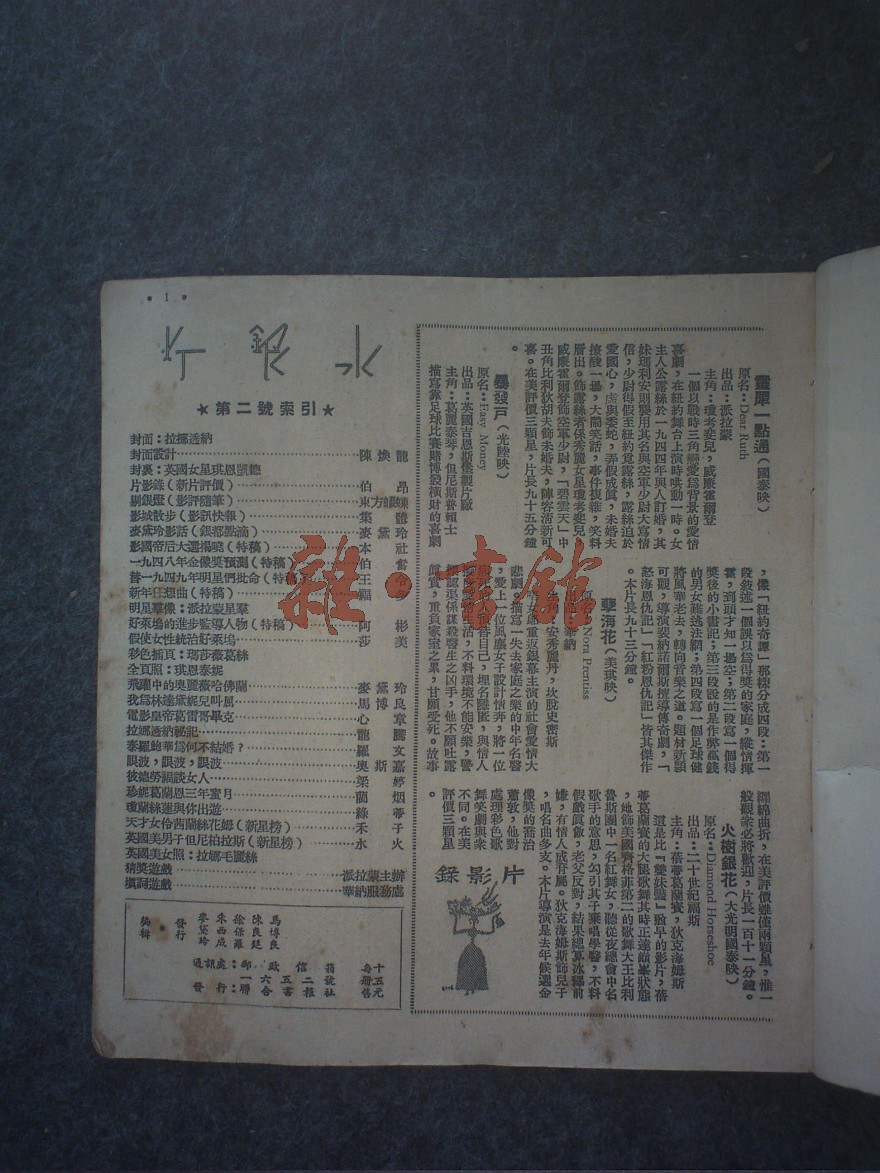 • 1 •
水銀燈
★第二號索引★
封面：拉娜透納
封面設計 陳煥龍
封裏：英國女星琪恩凱德
片影錄（新片評價） 伯昂
剔銀燈（影評隨筆） 東方
影城散步（影訊快報） 集體
麥黛玲影話（銀都點滴） 麥黛玲
影國帝后大選揭曉（特稿） 本社
一九四八年金像獎預測（特稿） 伯奮
替一九四九年明星們批命（特稿） 王
新年狂想曲（特稿） 福
明星羣像：派拉蒙星羣
好萊塢的進步監導人物（特稿） 阿彬
假使女性統治好萊塢 莎美
彩色插頁：瑪莎薇葛絲
全頁照：琪恩泰妮
飛躍中的奧麗薇哈佛蘭 麥黛玲
我爲林達黛妮兒叫屈 馬博良
電影皇帝葛雷哥畢克 心章
拉娜透納祕記 龍驤
泰羅鮑華爲何不結婚？ 羅文
眼波，眼波，眼波 奧斯嘉
彼德勞福談女人 梁婷
珍妮葛蘭恩三年蜜月 蘭烟
瓊蘭絲蓮與你出遊 綠蒂
天才女伶茜蘭絲花姆（新星榜） 禾子
英國美男子但尼柏拉斯（新星榜） 水火
英國美女照：拉娜毛麗絲
猜獎遊戲 派拉蒙主辦
填詞遊戲 華納服務處
編輯 發行
馬博良
陳良廷
徐保羅
朱西成
麥黛玲
通訊處：郵政信箱一六五二號
發行：聯合書報社
每册售十五元
靈犀一點通（國泰映）
原名：Dear Ruth
出品：派拉蒙
主角：瓊考斐兒，威廉霍爾登
一個以戰時三角戀愛爲背景的愛情
喜劇，在紐約舞台上演時哄動一時。女
主人公露絲於一九四四年與人訂婚，其
妹珈利安則襲用其名與空軍少尉大寫情
信，少尉得假至紐約覓露絲，露絲迫於
愛國心，虛與委蛇，弄假成眞，未婚夫
撩酸一場，大鬧笑話，事件複雜，笑料
層出。飾露絲者係秀麗女星瓊考斐兒
威廉霍爾登飾空軍少尉，「碧雲天」中
丑角比利狄胡夫飾未婚夫，陣容清新可
喜。在美評價三顆星，片長九十五分鐘
。
暴發戶（光陸映）
原名：Easy Money
出品：英國吉恩斯保製片廠
主角：葛麗泰琴，但尼斯普賴士
描寫靠足球比賽賭博發橫財的喜劇
，像「紐約奇譚」那樣分成四段：第一
段敘述一個誤以爲得獎的家庭，縱情揮
霍，到頭才知一場空；第二段寫一個得
獎後的小書記；第三段說的是作弊贏錢
的男女難逃法網；第四段寫一個足球健
將風華老去，轉向音樂之道。題材新穎
可觀，導演裴納諾爾斯擅導傳奇劇，「
怒海恩仇記」「紅粉恩仇記」皆其傑作
。本片長九十三分鐘。
孽海花（美琪映）
原名：Nora Prentiss
出品：華納
主角：安秀麗丹，坎脫史密斯
女 重返銀幕主演的社會愛情大
悲劇。描寫一失去家庭之樂的中年名醫
，愛上一位風塵女子設計情奔，將一位
自己，埋名隱匿，與情人
活，不料環境不能安樂，警
認爲係謀殺醫生之凶手，他不願吐露
眞實，重負家室之累，甘願受死。故事
纏綿曲折，在美評價雖僅兩顆星，惟一
般觀衆必將歡迎，片長一百十一分鐘。
火樹銀花（大光明國泰映）
原名：Diamond Horseshoe
出品：二十世紀福斯
主角：蓓蒂葛蘭賽，狄克海姆斯
這是比「雙妹豔」緻早的影片，蓓
蒂葛蘭賽的大腿歌舞其時正達巔峯狀態
，她飾美國齊格菲第二的歌舞大王比利
魯斯團中一名紅舞女，聽從夜總會中名
歌手的意思，勾引其子棄唱學醫，不料
假戲眞做，老父反對，結果總算冰釋前
嫌，有情人成眷屬。狄克海姆斯飾兒子
，唱名曲多支。本片導演是去年候選金
像獎的喬治
蕭敦，他對
處理彩色歌
舞笑劇與衆
不同。在美
評價三顆星
。
片影錄
雜·書館